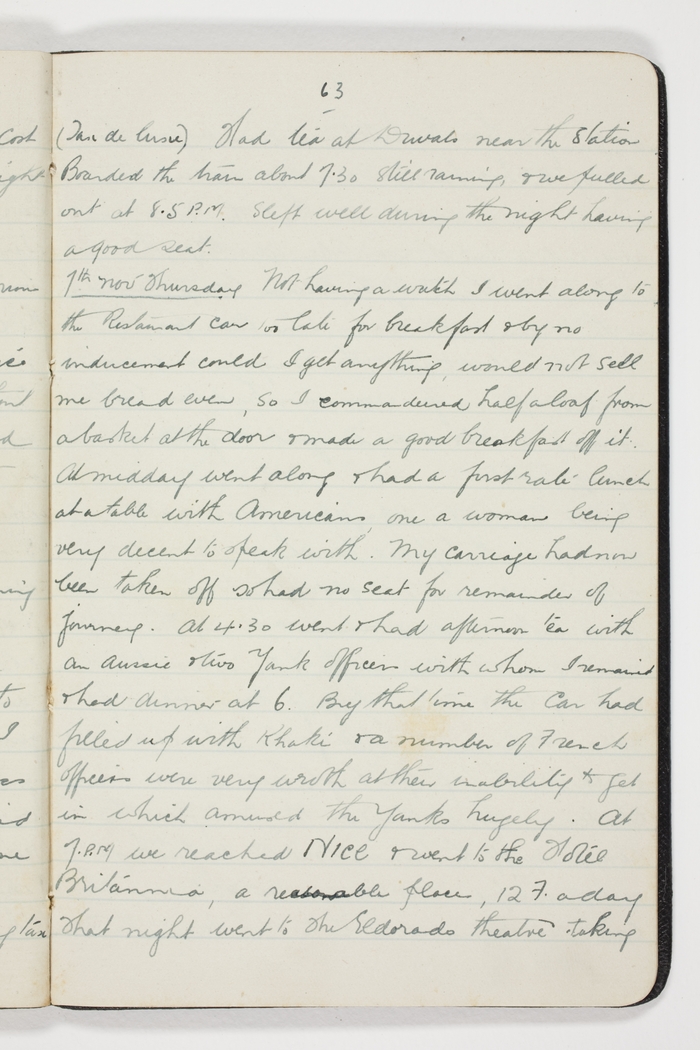 63
cost (Tax de luxe) Had tea at Duvals near the Station
Boarded the train about 7.30 still raining, & we pulled
out at 8.5 P.M. Slept well during the night having
a good seat.
7th Nov Thursday Not having a watch I went along to
the Restaurant car too late for breakfast & by no
inducement could I get anything, would not sell
me bread even, so I commandeered half a loaf from
a basket at the door & made a good breakfast off it.
At midday went along & had a first rate lunch
at a table with Americans, one a woman being
very decent to speak with. My carriage had now
been taken off so had no seat for remainder of
journey. At 4.30 went & had afternoon tea with
an Aussie & two Yank officers with whom I remained
& had dinner at 6. By that time the Car had
filled up with Khaki & a number of French
officers were very wroth at their inability to get
in which amused the Yanks hugely. At
7.P.M we reached NICE & went to the Hotel
Britannia, a reasonable place, 12 F. a day
That night went to the Eldorado theatre taking